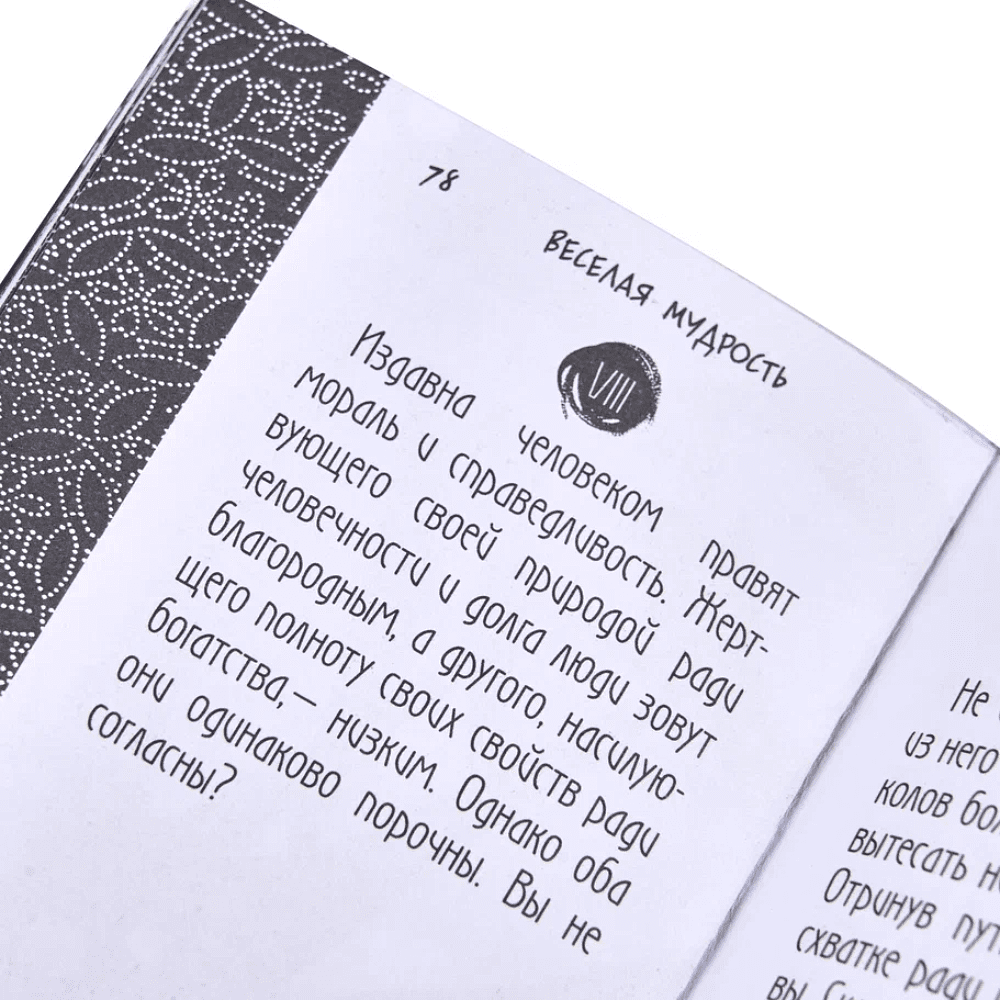 78
ВЕСЕЛАЯ МУДРОСТЬ
VIII
Издавна человеком правят
мораль и справедливость. Жерт-
вующего своей природой ради
человечности и долга люди зовут
благородным, а другого, насилую-
щего полноту своих свойств ради
богатства,— низким. Однако оба
они одинаково порочны. Вы не
согласны?
Не
из него
колов
вытесать
Отринув
схватке ради
вы